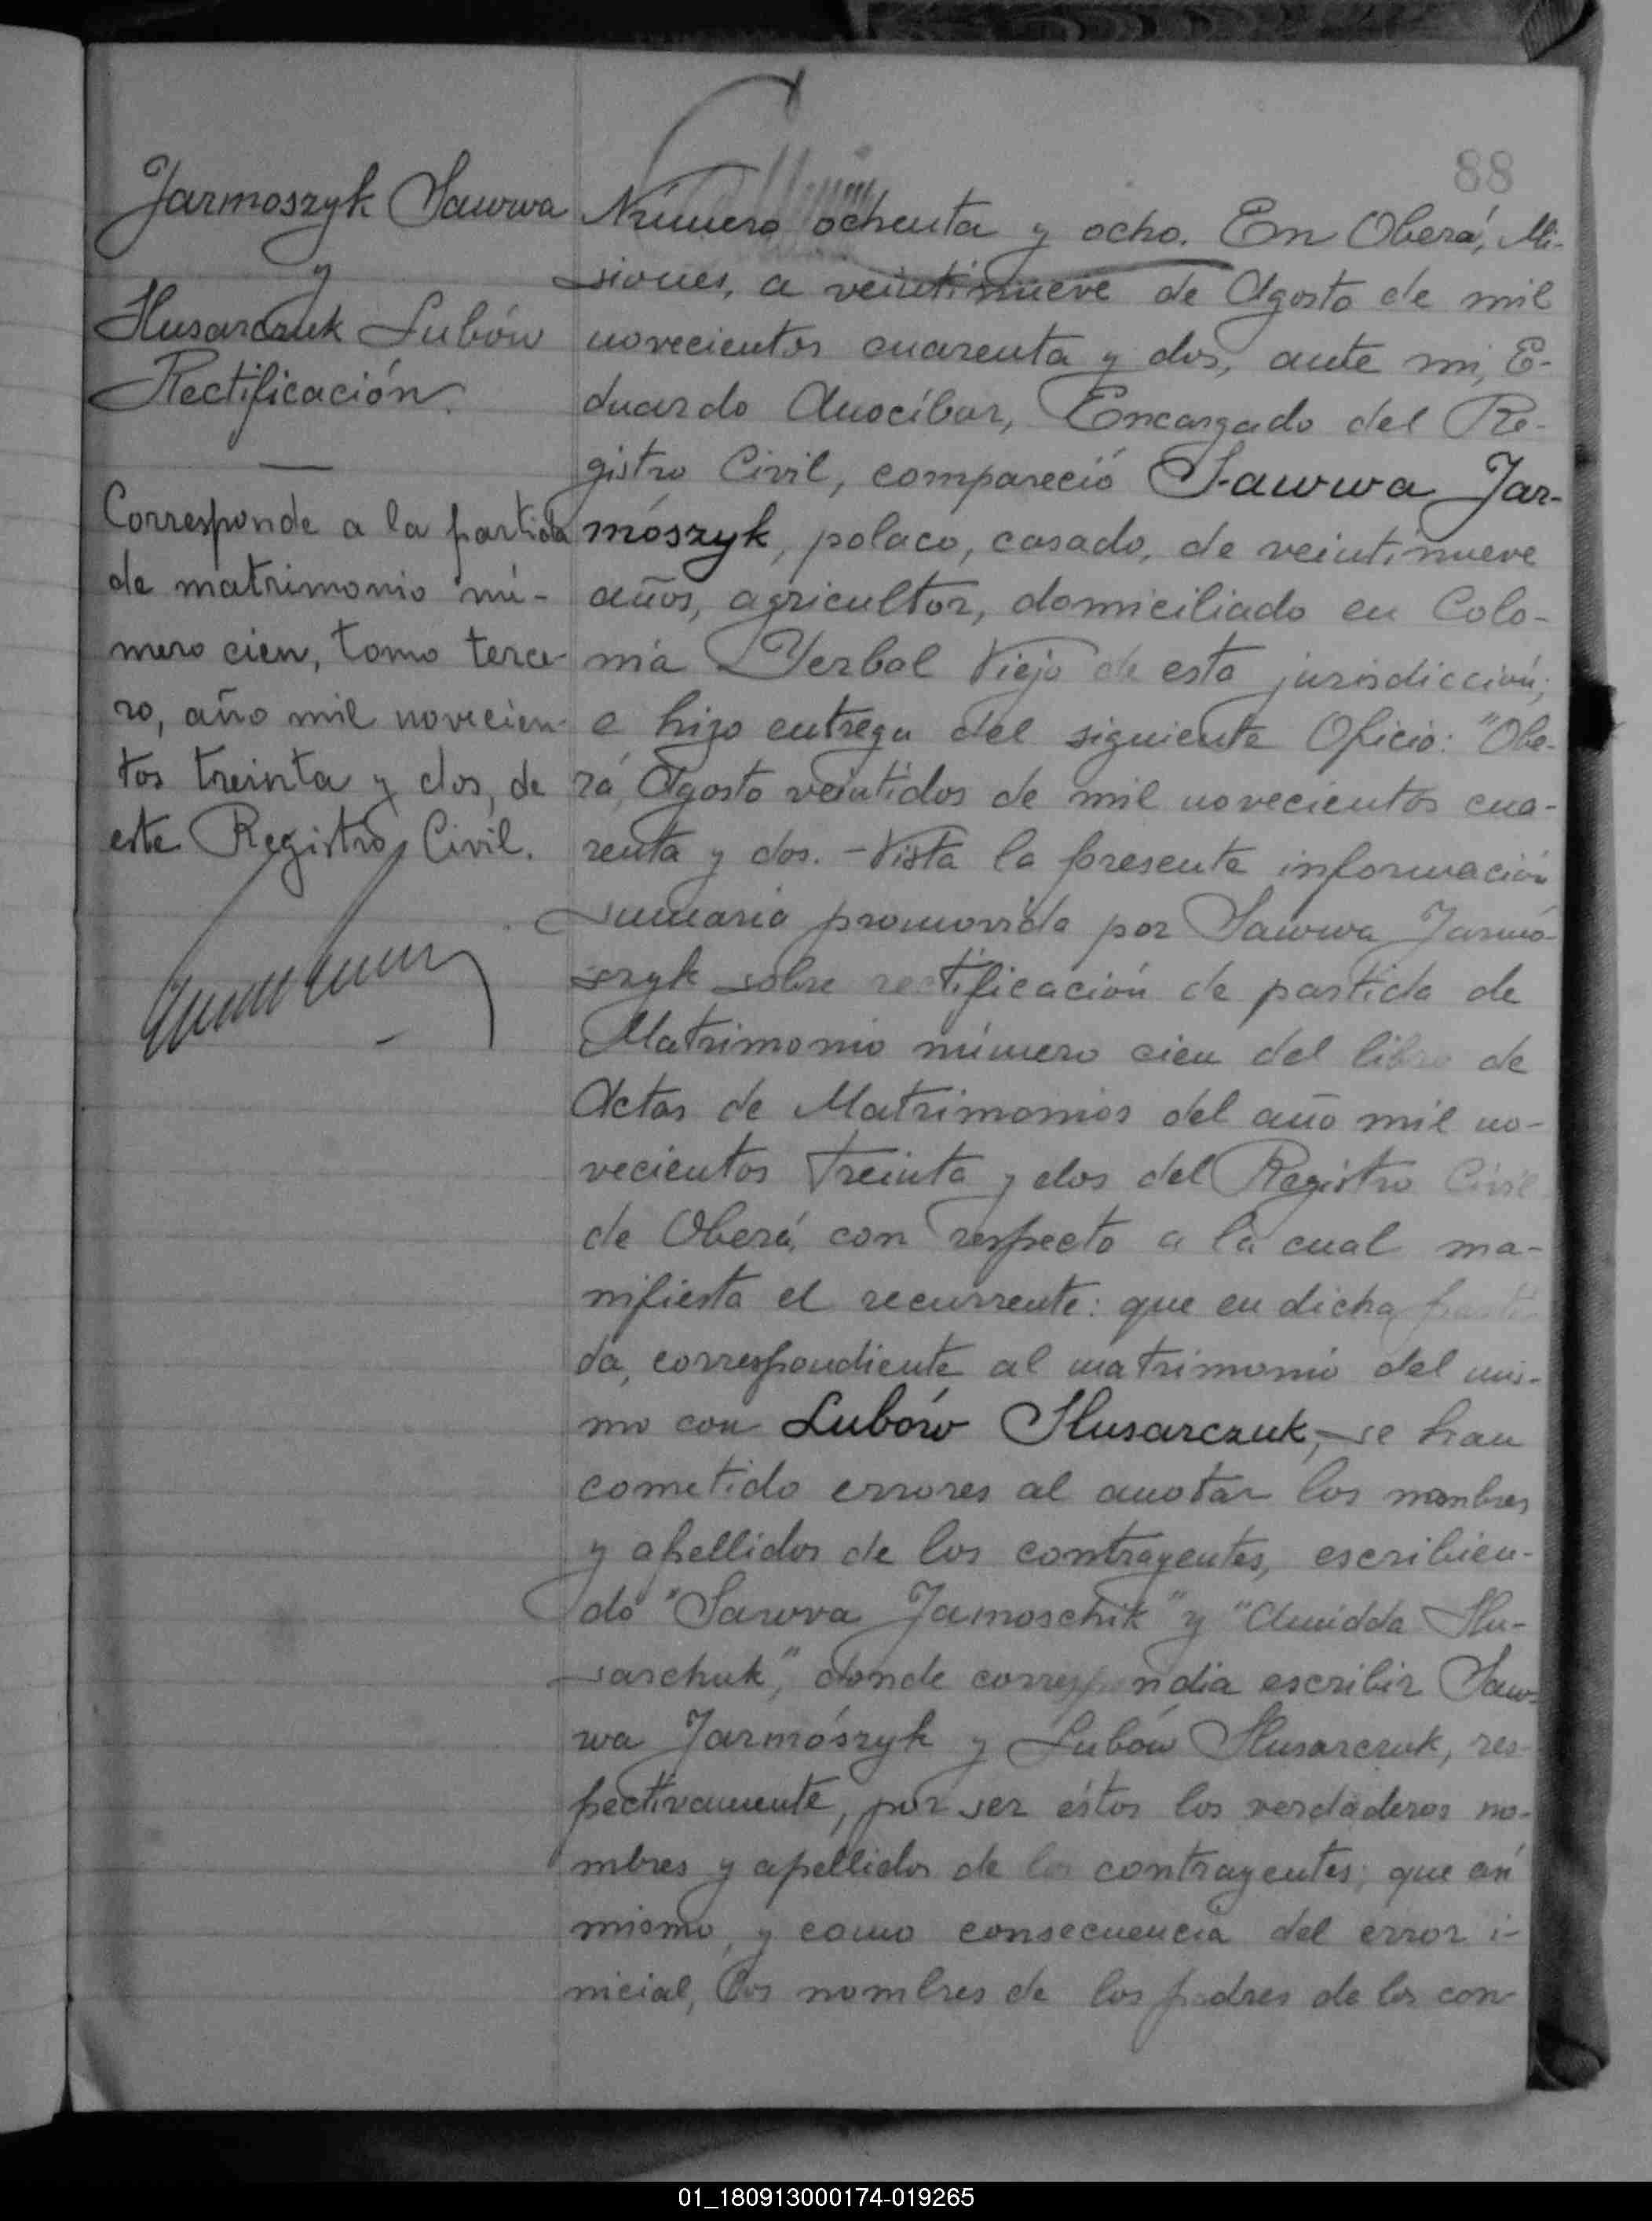 88
Jarmoszyk Sawwa
y
Slusarczuk Lubów
Rectificación.
Corresponde a la partida
de matrimonio nú-
mero cien, tomo terce-
ro, año mil novecien-
tos treinta y dos, de
este Registro Civil.
Número ochenta y ocho. En Oberá, Mi-
siones, a veintinueve de Agosto de mil
novecientos cuarenta y dos, ante mi, E-
duardo Anocíbar, Encargado del Re-
gistro Civil, compareció Sawwa Jar-
mószyk, polaco, casado, de veintinueve
años, agricultor, domiciliado en Colo-
nia Yerbal Viejo de esta jurisdicción;
e hizo entrega del siguiente Oficio: "Obe-
rá, Agosto veintidos de mil novecientos cua-
renta y dos. - Vista la presente información
sumaria promovida por Sawwa Jarmó-
szyk sobre rectificación de partida de
Matrimonio número cien del libro de
Actas de Matrimonios del año mil no-
vecientos treinta y dos del Registro Civil
de Oberá, con respecto a la cual ma-
nifiesta el recurrente: que en dicha parti-
da, correspondiente al matrimonio del mis-
mo con Lubów Slusarczuk, se han
cometido errores al anotar los nombres
y apellidos de los contrayentes, escribien-
do "Sawva Jamoschik" y "Amidda Slu-
sarchuk", donde correspondia escribir Saw-
wa Jarmószyk y Lubów Slusarczuk, res-
pectivamente, por ser éstos los verdaderos no-
mbres y apellidos de los contrayentes; que así
mismo, y como consecuencia del error i-
nicial, los nombres de los padres de los con-
01_180913000174-019265